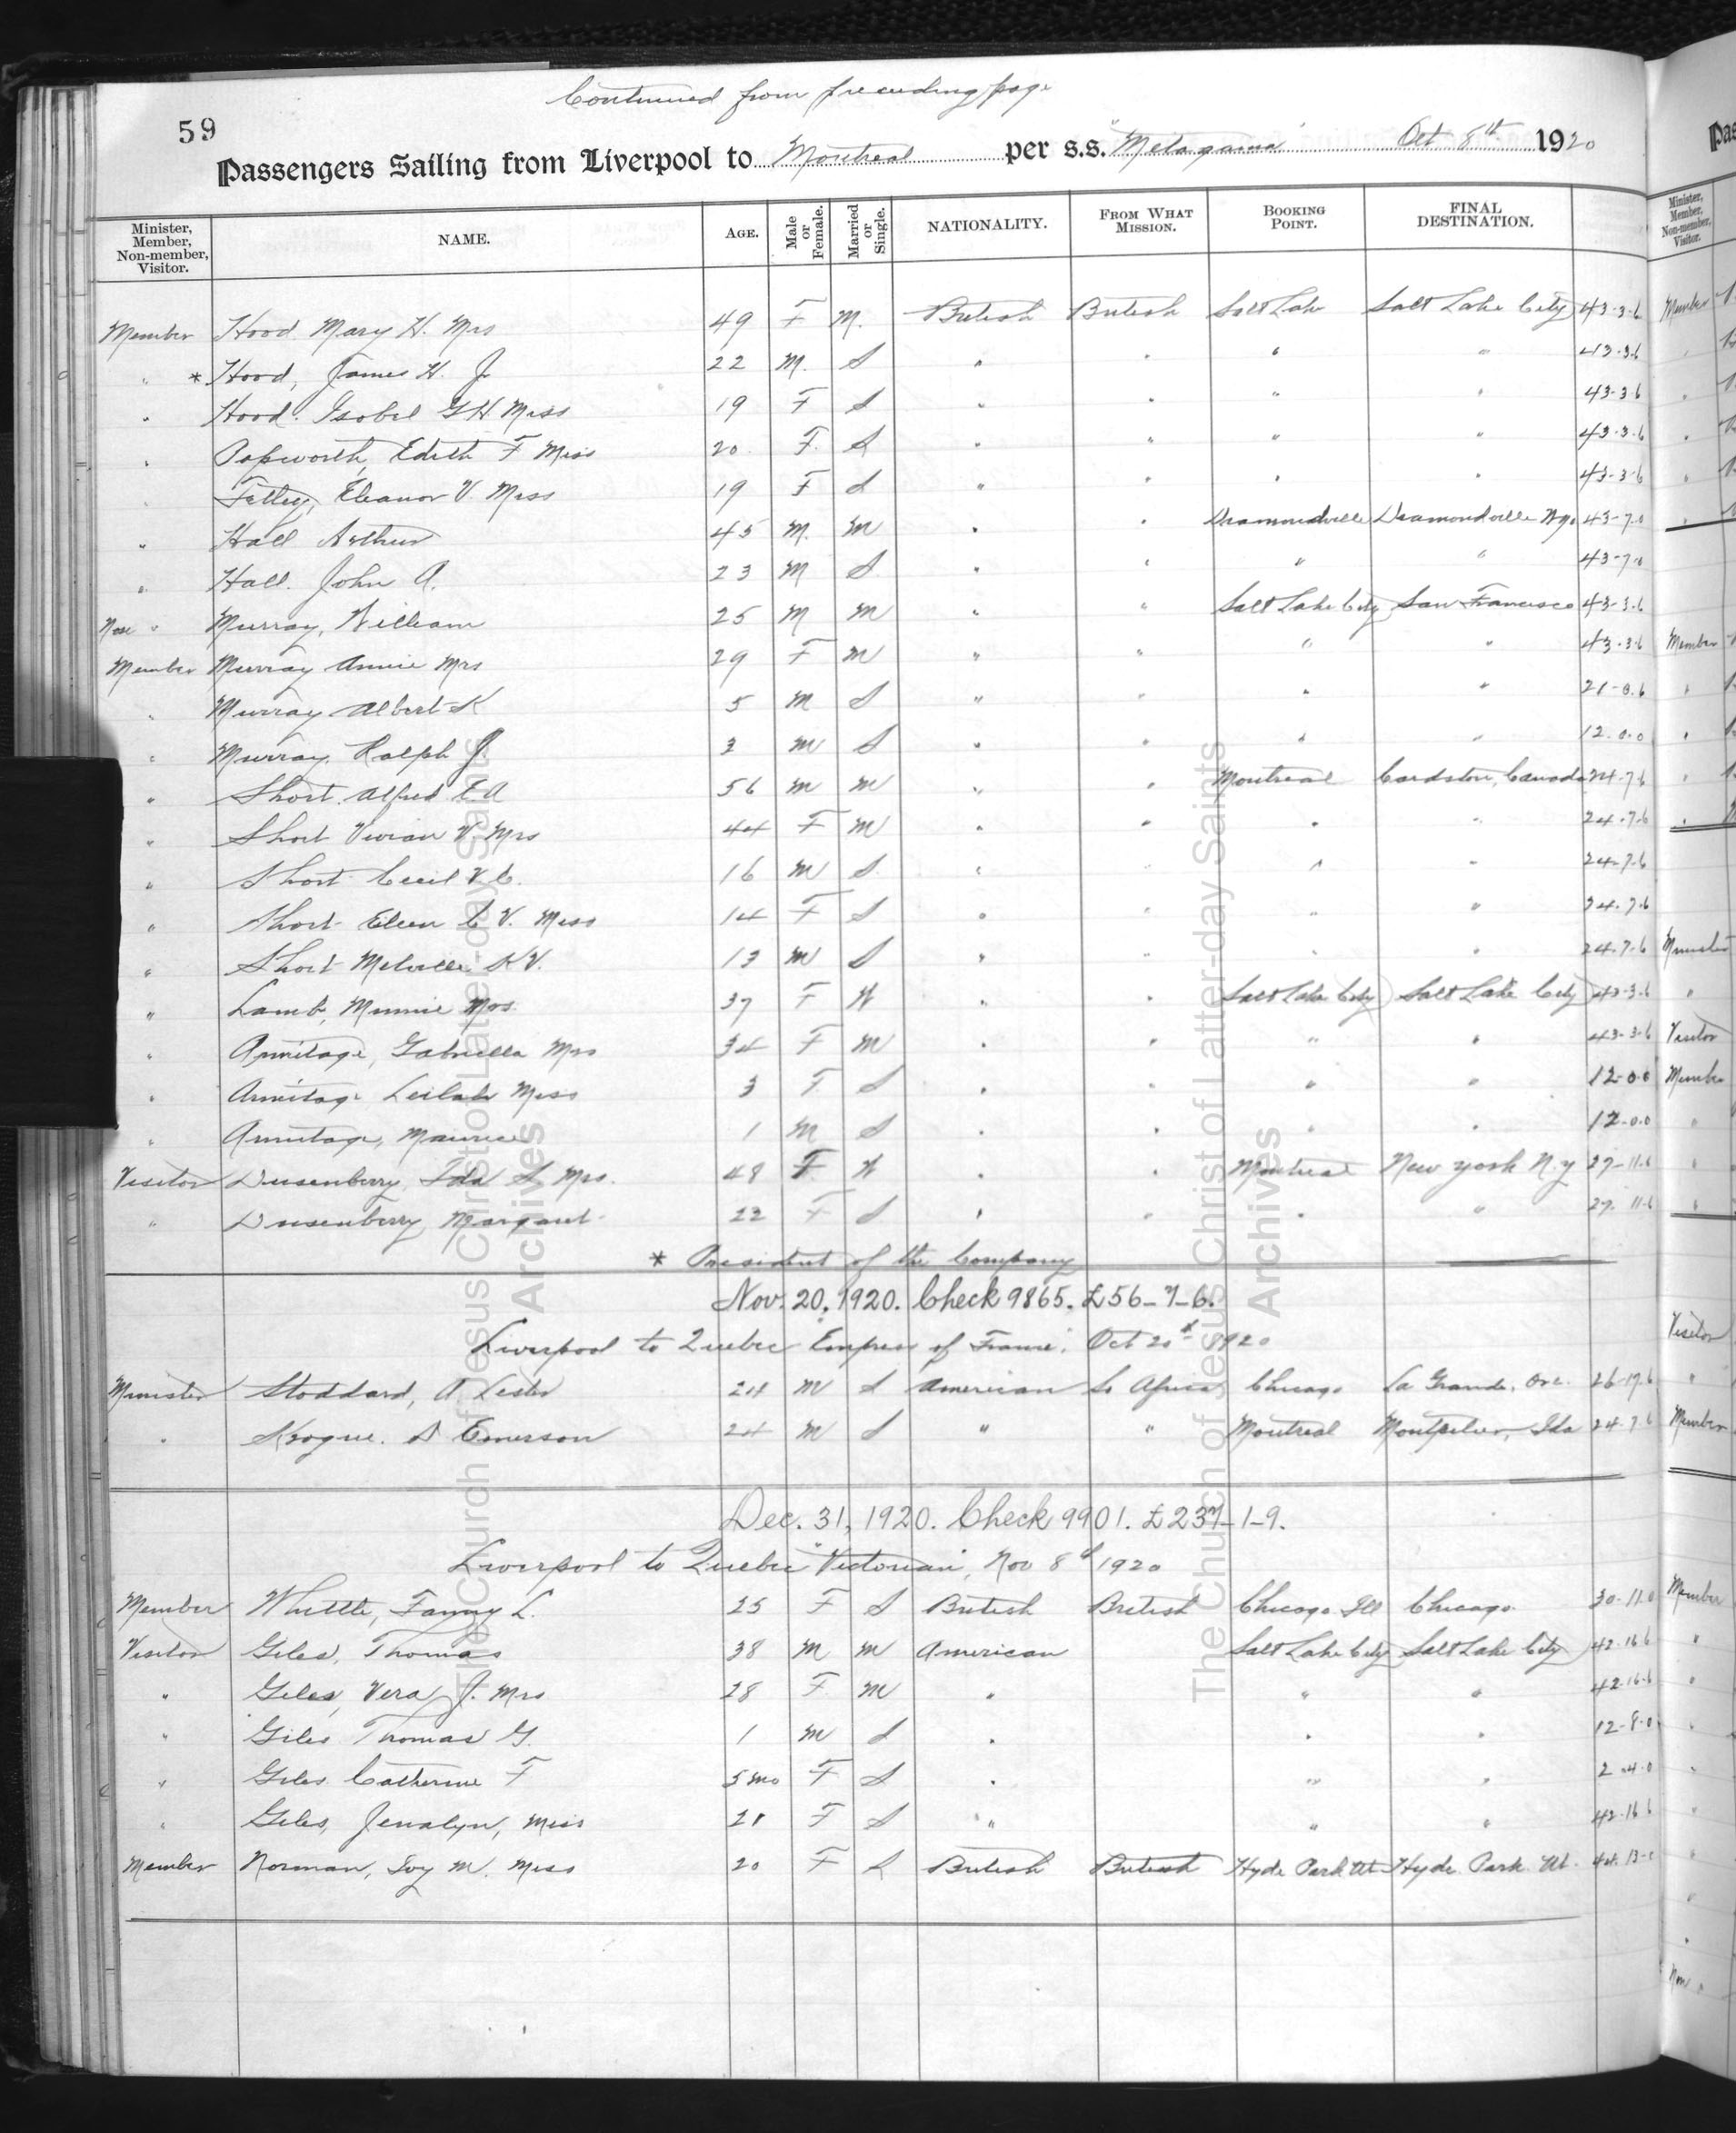 Continued from preceeding page
59
Passengers Sailing from Liverpool to Montreal per s.s. "Metagama" Oct 8th 1920
Minister, Member, Non-member, Visitor. NAME. AGE. Male or Female. Married or Single. NATIONALITY. FROM WHAT MISSION. BOOKING POINT. FINAL DESTINATION.
Member Hood Mary H. Mrs 49 F M. British British Salt Lake Salt Lake City 43-3-6
" * Hood, James H. J 22 M. S " " " " 43-3-6
" Hood. Isobel G H Miss 19 F S " " " " 43-3-6
" Papworth, Edith F Miss 20 F. S " " " " 43-3-6
" Eleanor V. Miss 19 F S " " " " 43-3-6
" Hall Arthur 45 M. M " " Diamondville Diamondville Wyo 43-7-0
" Hall. John A. 23 M S " " " " 43-7-0
Non " Murray, William 25 M M " " Salt Lake City San Francisco 43-3-6
Member Murray Annie Mrs 29 F M " " " " 43-3-6
" Murray Albert K 5 M S " " " " 21-0-6
" Murray. Ralph J. 3 M S " " " " 12-0-0
" Short. Alfred E. A 56 M M " " Montreal Cardston, Canada 24-7-6
" Short Vivian V. Mrs 44 F M " " " " 24-7-6
" Short Cecil V. C. 16 M S " " " " 24-7-6
" Short Eileen C V. Miss 14 F S " " " " 24-7-6
" Short Melville K V. 13 M S " " " " 24-7-6
" Lamb, Minnie Mrs 37 F W " " Salt Lake City Salt Lake City 43-3-6
" Armitage, Gabriella Mrs 34 F M " " " " 43-3-6
" Armitage Leilah Miss 3 F S " " " " 12-0-0
" Armitage, Maurice 1 M S " " " " 12-0-0
Visitor Dusenberry, Ida S. Mrs. 48 F W " " Montreal New York N.Y 27-11-6
" Dusenberry, Margaret 22 F S " " " " 27-11-6
* President of the Company
Nov. 20, 1920. Check 9865. £56-7-6.
Liverpool to Quebec "Empress of France". Oct 20th 1920
Minister Stoddard, A. Lester 24 M S American So Africa Chicago La Grande, Ore. 26-17-6
" Krogue. D Emerson 24 M S " " Montreal Montpelier, Ida 24-7-6
Dec. 31, 1920. Check 9901. £237-1-9.
Liverpool to Quebec "Victorian", Nov 8th 1920
Member Whittle, Fanny L. 25 F S British British Chicago Ill Chicago 30-11-0
Visitor Giles, Thomas 38 M M American Salt Lake City Salt Lake City 42-16-6
" Giles, Vera J. Mrs 28 F M " " " 42-16-6
" Giles Thomas G. 1 M S " " " 12-8-0
" Giles Catherine F 5 mo F S " " " 2-4-0
" Giles, Jenalyn, Miss 21 F S " " " 42-16-6
Member Norman, Ivy M. Miss 20 F S British British Hyde Park Ut Hyde Park Ut.
The Church of Jesus Christ of Latter-day Saints
Archives
The Church of Jesus Christ of Latter-day Saints
Archives
Pas
Minister, Member, Non-member, Visitor.
Member
Member
Minister
"
Visitor
Member
Visitor
"
Member
Member
Non "